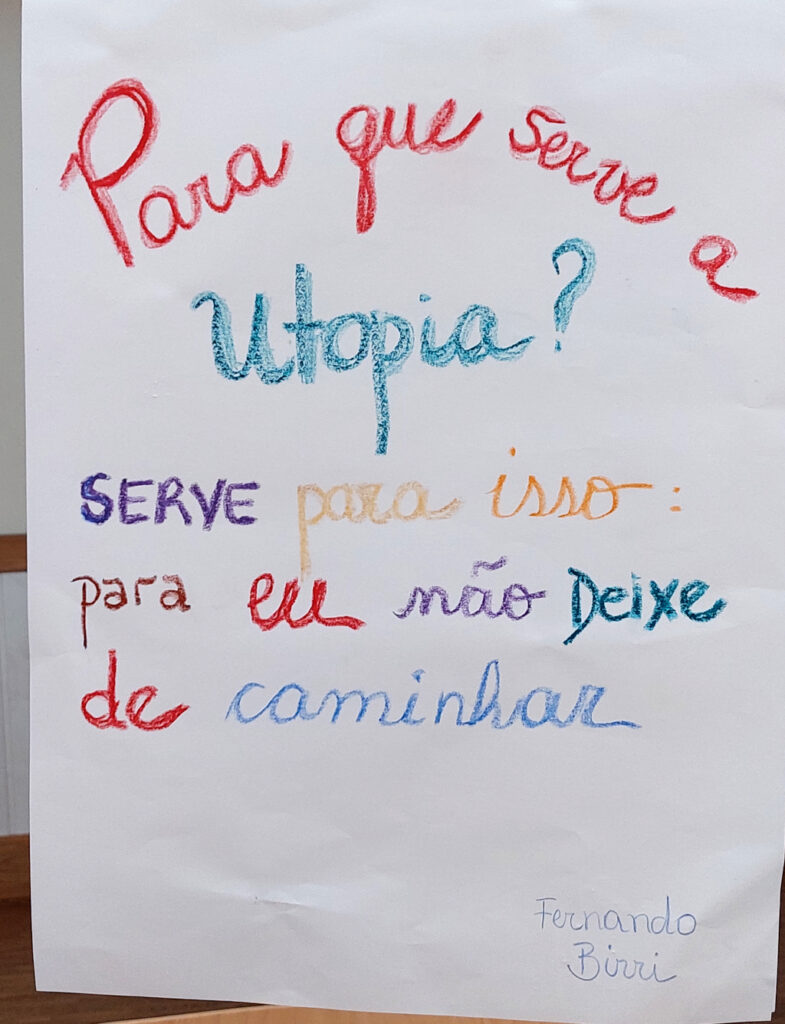 Para que serve a
Utopia?
SERVE para isso:
para eu não Deixe
de caminhar
Fernando
Birri